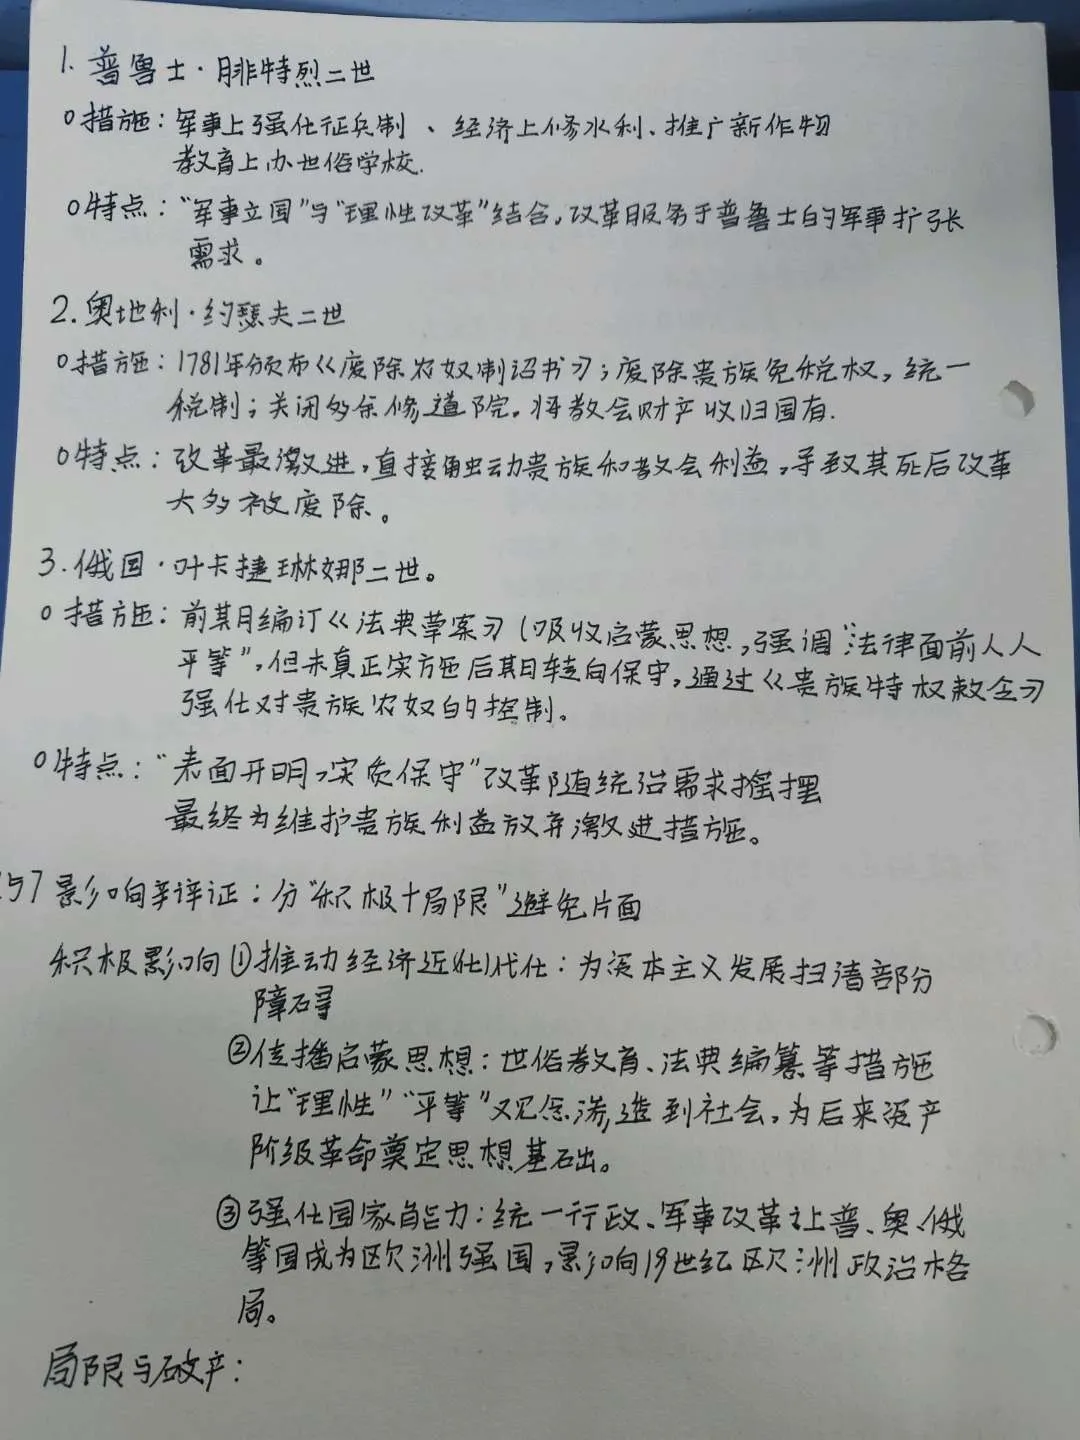 1. 普鲁士·腓特烈二世
○措施：军事上强化征兵制、经济上修水利、推广新作物
教育上办世俗学校.
○特点："军事立国"与"理性改革"结合，改革服务于普鲁士的军事扩张
需求。
2. 奥地利·约瑟夫二世
○措施：1781年颁布《废除农奴制诏书》；废除贵族免税权，统一
税制；关闭多余修道院，将教会财产收归国有.
○特点：改革最激进，直接触动贵族和教会利益，导致其死后改革
大多被废除。
3. 俄国·叶卡捷琳娜二世。
○措施：前期编订《法典草案》（吸收启蒙思想，强调"法律面前人人
平等"，但未真正实施后期转向保守，通过《贵族特权敕令》
强化对贵族农奴的控制。
○特点："表面开明，实质保守"改革随统治需求摇摆
最终为维护贵族利益放弃激进措施。
157 影响辩证：分"积极+局限"避免片面
积极影响①推动经济近代化：为资本主义发展扫清部分
障碍
②传播启蒙思想：世俗教育、法典编纂等措施
让"理性""平等"观念渗透到社会，为后来资产
阶级革命奠定思想基础。
③强化国家能力：统一行政、军事改革让普、奥、俄
等国成为欧洲强国，影响19世纪欧洲政治格
局。
局限与破产：